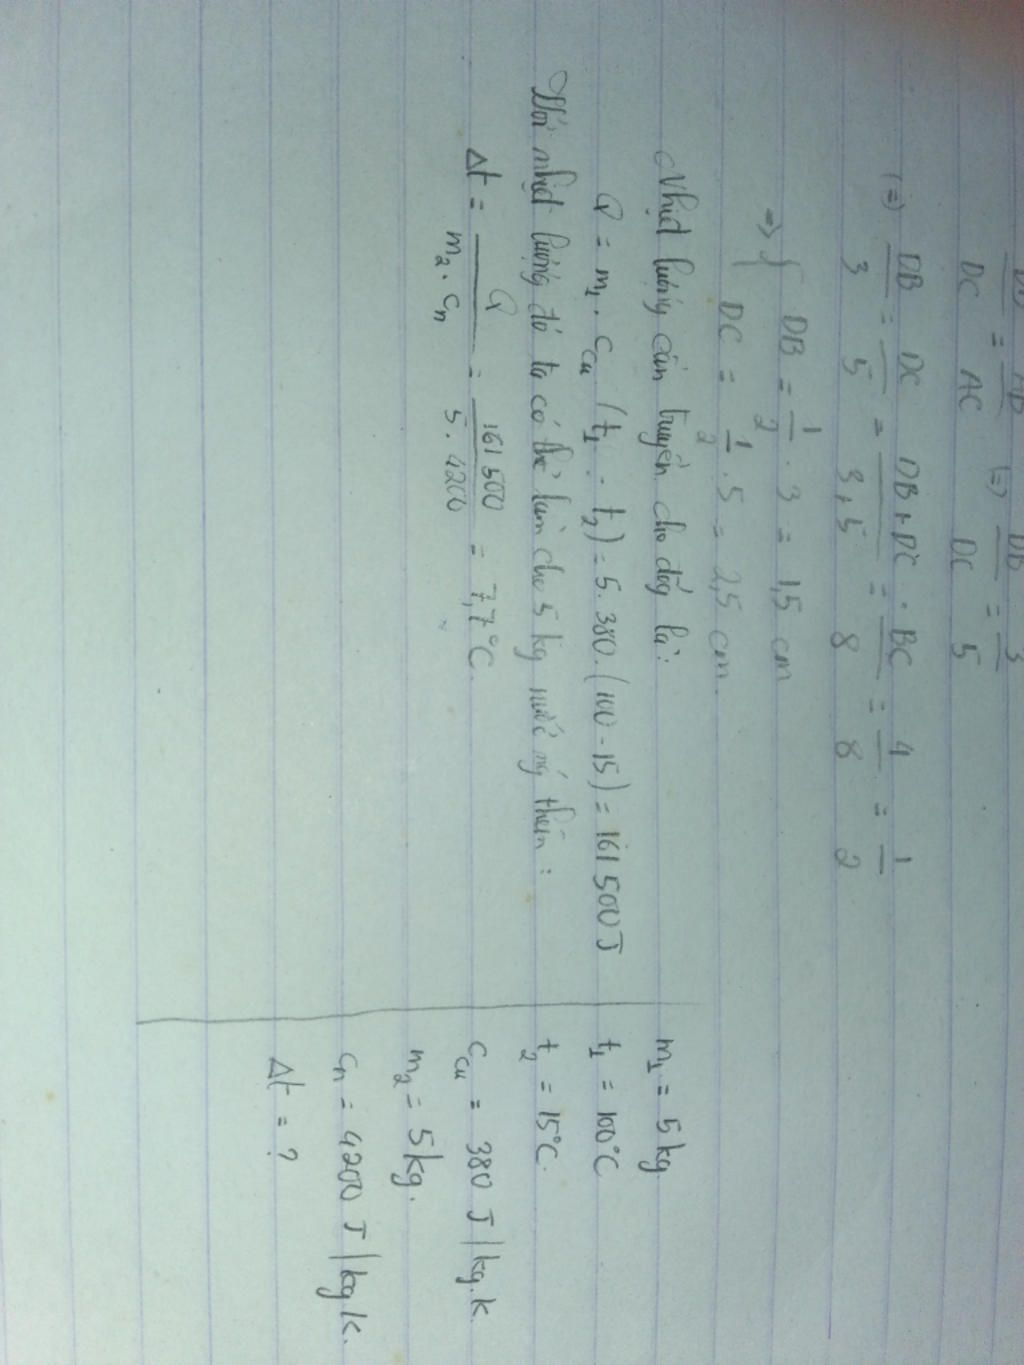 DB/DC = AB/AC (=) DB/DC = 3/5
(=) DB/3 = DC/5 = DB+DC/3+5 = BC/8 = 4/8 = 1/2
=> { DB = 1/2 . 3 = 1,5 cm
DC = 1/2 . 5 = 2,5 cm.
Nhiệt lượng cần truyền cho đồng là:
Q = m₁. c_cu (t₁ - t₂) = 5.380.(100-15) = 161 500 J
Với nhiệt lượng đó ta có thể làm cho 5 kg nước nóng thêm :
Δt = Q/m₂. cₙ = 161 500/5. 4200 = 7,7°C.
m₁ = 5 kg.
t₁ = 100°C
t₂ = 15°C.
c_cu = 380 J/kg.k.
m₂ = 5kg.
cₙ = 4200 J/kg.k.
Δt = ?